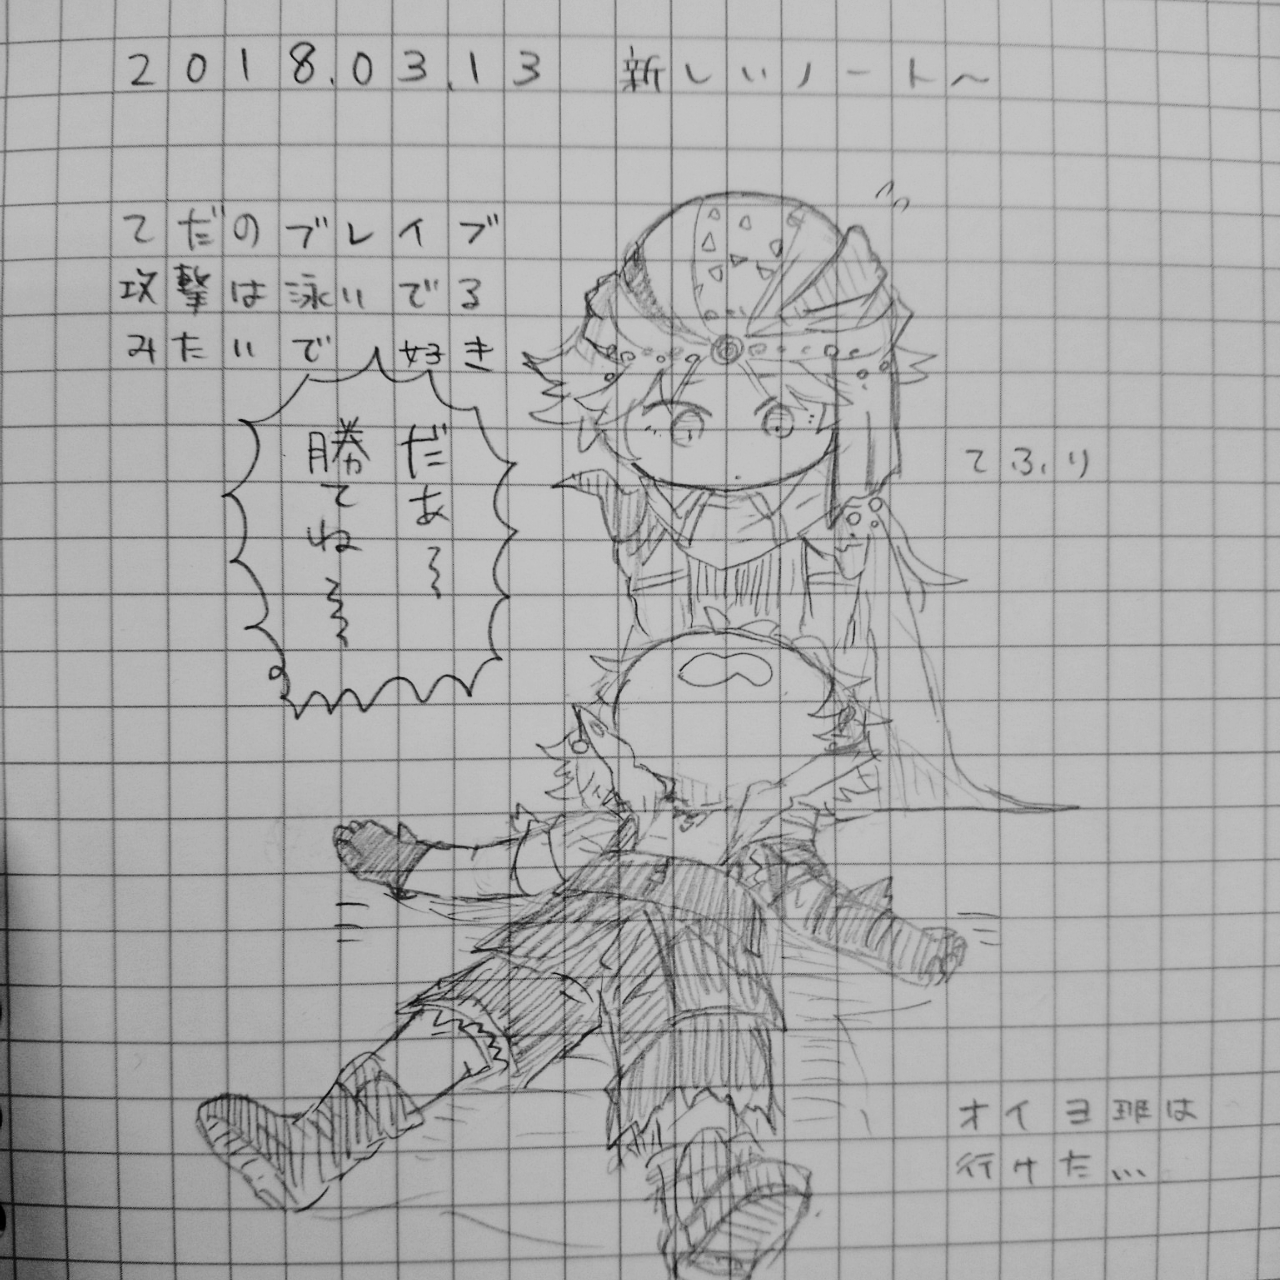 2018.03.13 新しいノート〜
てだのブレイブ
攻撃は泳いでる
みたいで 好き
だあ〜
勝てね〜
てふり
オイヨ班は
行けた…